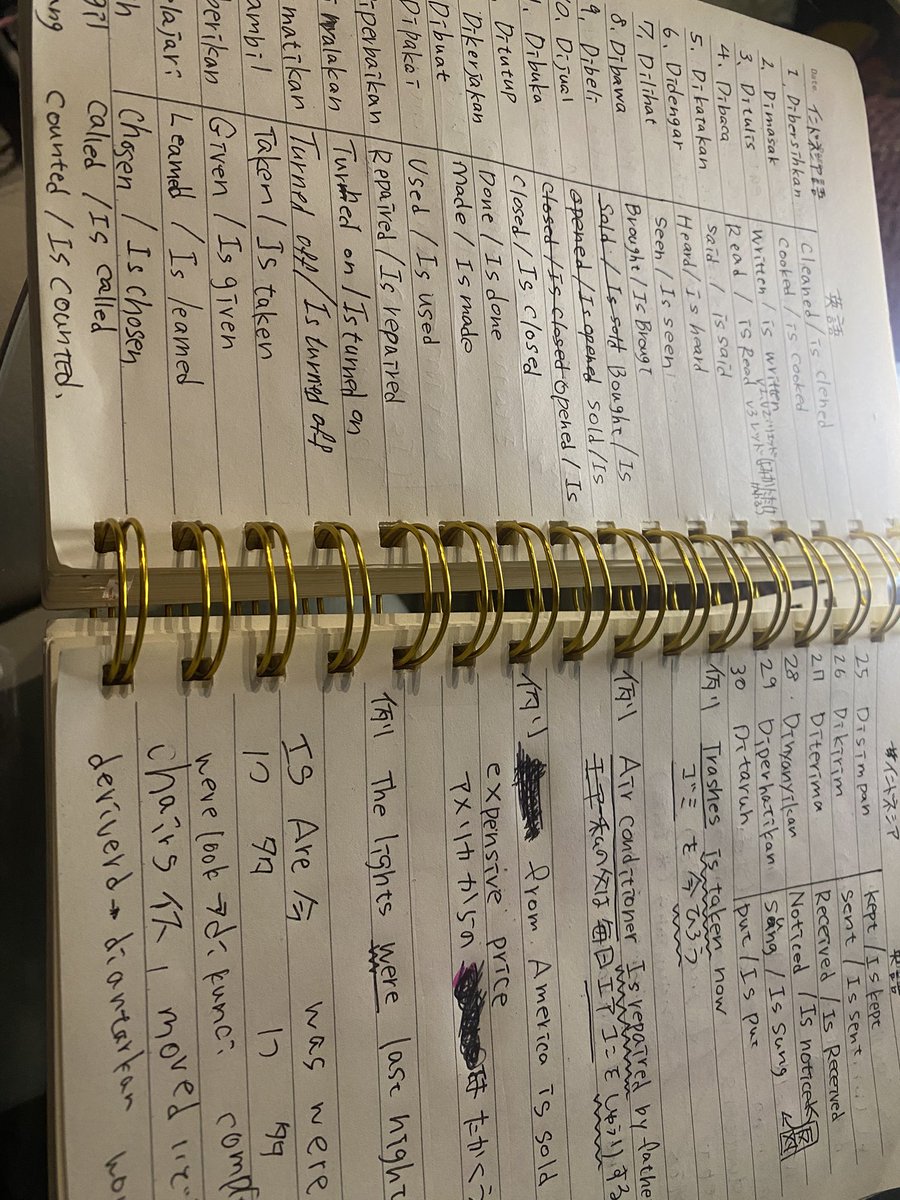 Date. インドネシア語 英語
1. Dibersihkan cleaned / is clened
2. Dimasak cooked / is cooked
3. Ditulis written / is written
4. Dibaca Read / is Read
5. Dikatakan said / is said
6. Didengar Heard / is heard
7. Dilihat seen / Is seen
8. Dibawa Brought / Is Brougt
9. Dibeli Sold / Is sold Bought / Is
0. Dijual opened / Is opened sold / Is
1. Dibuka closed / is closed opened / Is
Ditutup closed / Is closed
Dikerjakan Done / Is done
Dibuat Made / Is made
Dipakai Used / Is used
iperbaikan Repaired / Is repaired
nyalakan Turned on / Is turned on
matikan Turned off / Is turned off
ambil Taken / Is taken
berikan Given / Is given
elajari Learned / Is learned
h Chosen / Is chosen
gil called / Is called
ang counted / Is counted.
#インドネシア 英語
25 Disimpan kept / Is kept
26 Dikirim sent / Is sent
27 Diterima Received / Is Received
28. Dinyanyikan Noticed / Is notice
29 Diperhatikan sung / Is sung
30 Ditaruh put / Is put
例 Trashes is taken now
ゴミ を 今 ひろう
例 Air conditioner Is repaired by fathe
毎日 エアコンをしゅうりする
例 from America is sold
expensive price
アメリカからの たかくう
例 The lights were last night
Is Are 今 was were
werelock → di kunci comp
chairs 1 moved
deriverd → diantarkan